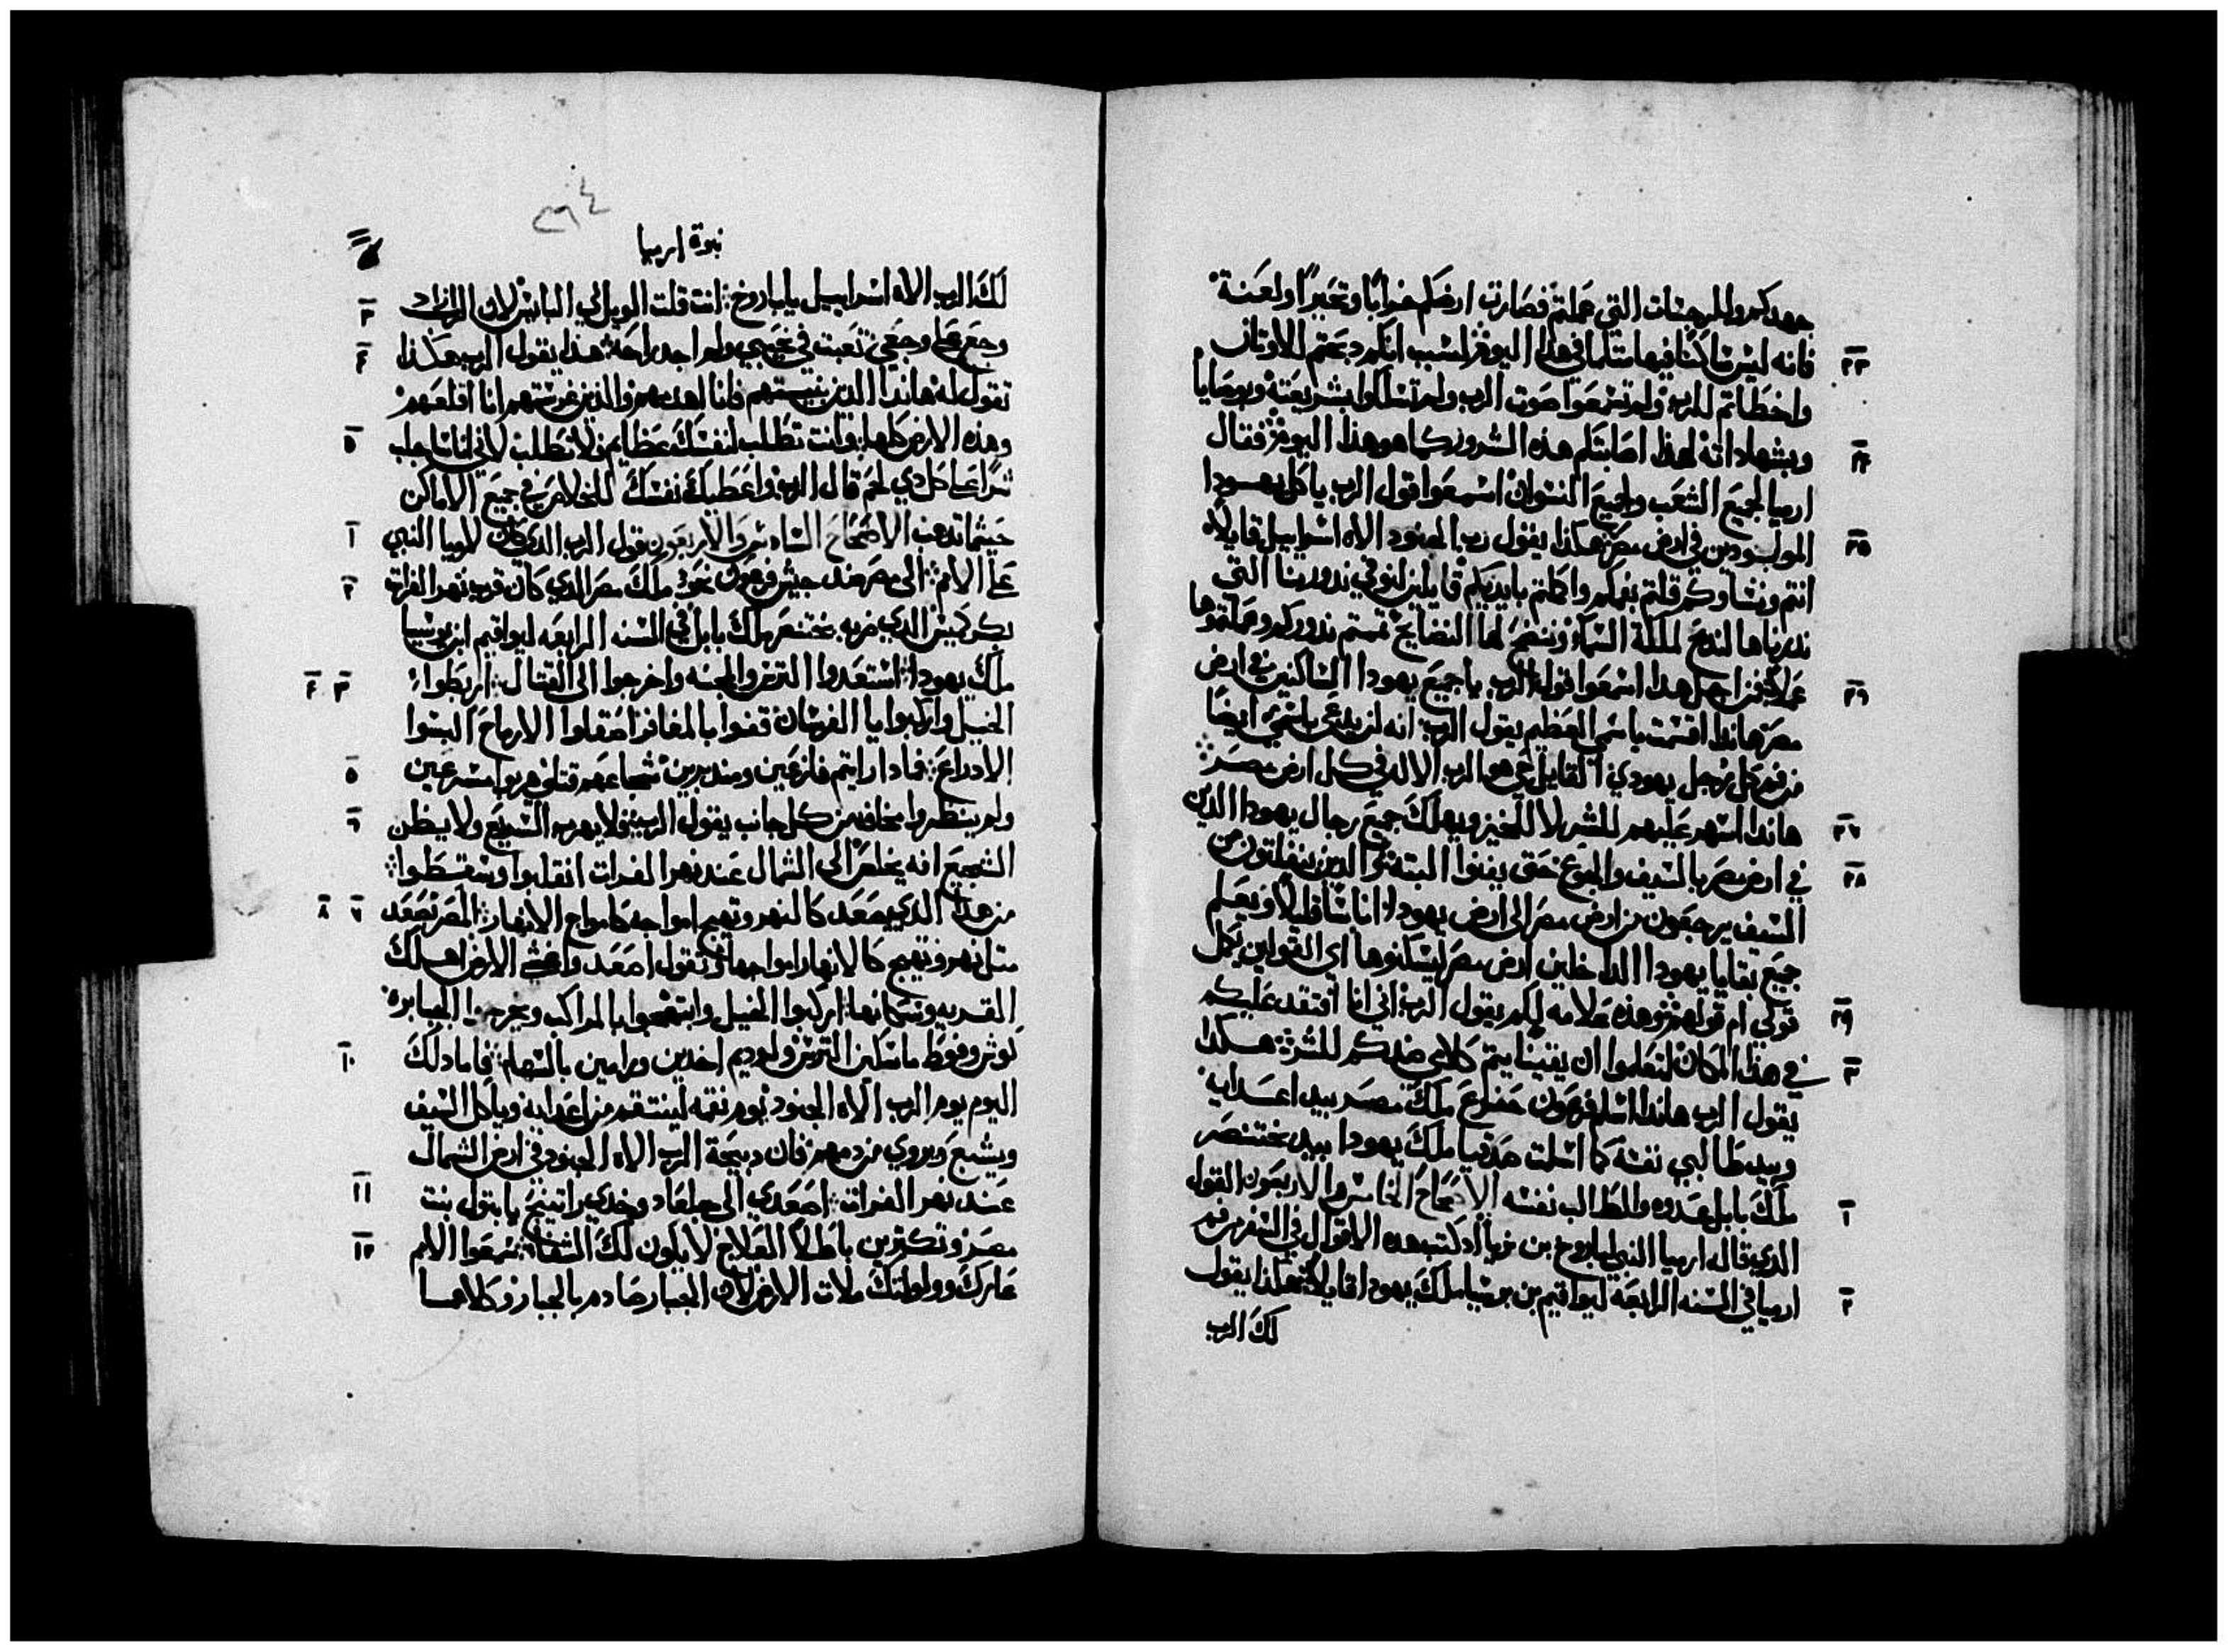 جهدكم وللرجسات التي عملتم فصارت ارضكم خرابًا وتحيرًا ولعنة
٢٣ فانه ليس ساكنًا فيها مثلما في هذا اليوم لسبب انكم دبحتم للاوتان
واخطاتم للرب ولم تسمعوا صوت الرب ولم تسلكوا بشريعته وبوصايا
٢٤ وبشهاداته لهذا اصابتكم هذه الشرور كما هو هذا اليوم فقال
ارميا لجميع الشعب ولجميع النسوان اسمعوا قول الرب يا كل يهودا
٢٥ الموجودين في ارض مصر هكذا يقول رب الجنود الاه اسراييل قايلاً
انتم ونساوكم قلتم بفمكم واكملتم بايديكم قايلين لنوفي ندورنا التي
ندرناها لندبح لملكة السماء وننضح لها النضايح تممتم ندوركم وعملتموها
٢٦ عملاً فمن اجل هذا اسمعوا قول الرب يا جميع يهودا الساكنين في ارض
مصر هاندا اقسمت باسمي العظيم يقول الرب انه لن يدعى باسمي ايضًا
من فم كل رجل يهودي القايل حي هو الرب الاله في كل ارض مصر
٢٧ هاندا اسهر عليهم للشر لا للخير ويهلك جميع رجال يهودا الذين
٢٨ في ارض مصر بالسيف والجوع حتى يفنوا البتة والذين ينفلتون من
السيف يرجعون من ارض مصر الى ارض يهودا اناسًا قليلاً ويعلم
جميع بقايا يهودا الداخلين ارض مصر ليسكنوها اي القولين يكمل
٢٩ قولي ام قولهم وهذه علامه لكم يقول الرب اني انا افتقد عليكم
٣٠ في هذا المكان لتعلموا ان يقينا يتم كلامي ضدكم للشر هكذا
يقول الرب هاندا اسلم فرعون حفراع ملك مصر بيد اعدايه
وبيد طالبي نفسه كما اسلمت صدقيا ملك يهودا بيد بختنصر
١ ملك بابل عدوه والطالب نفسه الاصحاح الخامس والاربعون القول
الذي قال ارميا النبي لباروخ بن نريا اد كتب هده الاقوال في السفر من فم
٢ ارميا في السنه الرابعه ليواقيم بن يوسيا ملك يهودا قايلاً هكذا يقول
لك الرب
نبوة ارميا
لك الرب الاه اسراييل يا باروخ انت قلت الويل لي البايس لان الرب زاد ٣
وجع على وجعي تعبت في نحيبي ولم اجد راحه هذا يقول الرب هكذا ٤
تقول له هاندا الدين بنيتهم فانا اهدمهم والذين غرستهم انا اقلعهم
وهذه الارض كلها وانت تطلب لنفسك عظايم لا تطلب لاني انا جالب ٥
شرًا على كل دي لحم قال الرب واعطيك نفسك للخلاص في جميع الاماكن
حيثما تدهب الاصحاح السادس والاربعون قول الرب الذي كان لارميا النبي ١
على الامم الى مصر ضد جيش فرعون نخو ملك مصر الدي كان قرب نهر الفرات ٢
بكركميش الدي ضربه بختنصر ملك بابل في السنه الرابعه ليواقيم ابن يوسيا
ملك يهودا استعدوا الترس والمجنه واخرجوا الى القتال اربطوا ٣ ٤
الخيل واركبوا يا الفرسان قفوا بالمغافر اصقلوا الارماح البسوا
الادراع فمادا رايتم فازعين ومندبرين شجاعهم قتلى هربوا مسرعين ٥
ولم ينظروا مخافه من كل جانب يقول الرب فلا يهرب السريع ولا يظن ٦
الشجيع انه يخلص الى الشمال عند نهر الفرات انقلبوا وسقطوا
من هدا الدي يصعد كالنهر وتهيج امواجه كامواج الانهار المصر تصعد ٧ ٨
متل نهر وتهيج كالانهار امواجها وتقول اصعد واغشي الارض اهلك
القريه وسكانها اركبوا الخيل وابتهجوا بالمراكب وتخرجوا الجبابره
كوش وفوط ماسكين الترس ولوديم اخدين ورامين بالسهام فاما دلك ١٠
اليوم يوم الرب الاه الجنود يوم نقمه لينتقم من اعدايه وياكل السيف
ويشبع ويروي من دمهم فان دبيحة الرب الاه الجنود في ارض الشمال
عند نهر الفرات اصعدي الى جلعاد وخدي راتينج يا بتول بنت ١١
مصر وتكترين باطلاً العلاج لا يكون لك الشفاء سمعوا الامم ١٢
عارك وولولتك ملات الارض لان الجبار صادم بالجبار وكلاهما